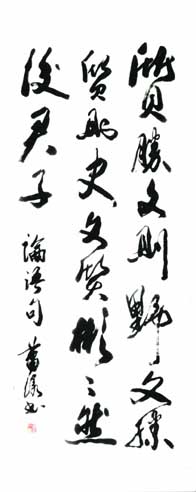 質勝文則野文勝
質則史文質彬〻然
後君子
論語句